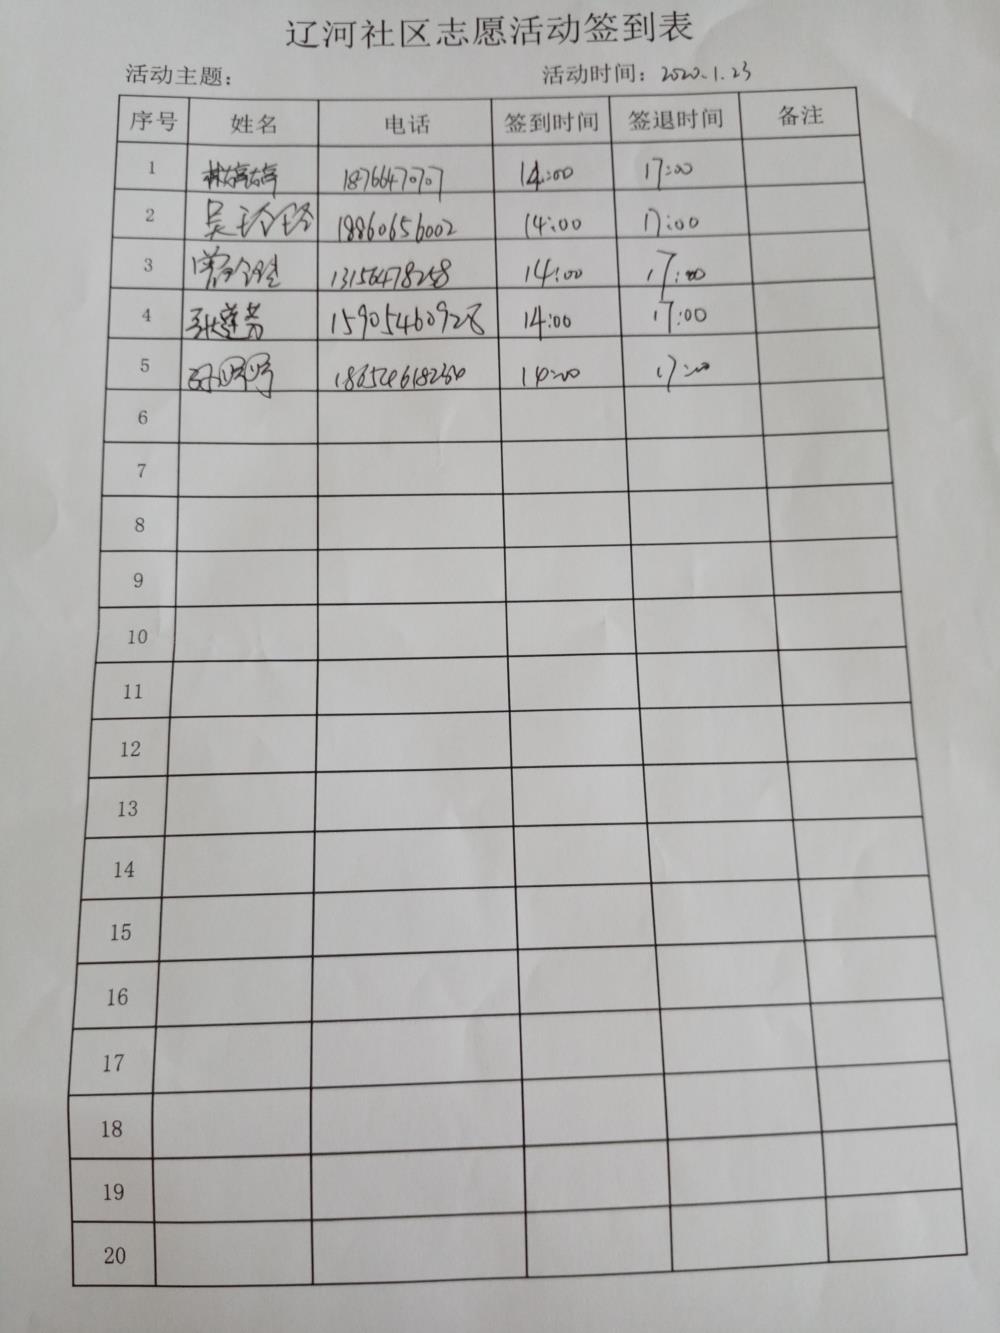 辽河社区志愿活动签到表
活动主题： 活动时间：2020.1.23
序号 姓名 电话 签到时间 签退时间 备注
1 林婷婷 18766470707 14:00 17:00
2 吴玲玲 18860656002 14:00 17:00
3 13156478258 14:00 17:00
4 张莲芳 15905460928 14:00 17:00
5 14:00 17:00
6
7
8
9
10
11
12
13
14
15
16
17
18
19
20